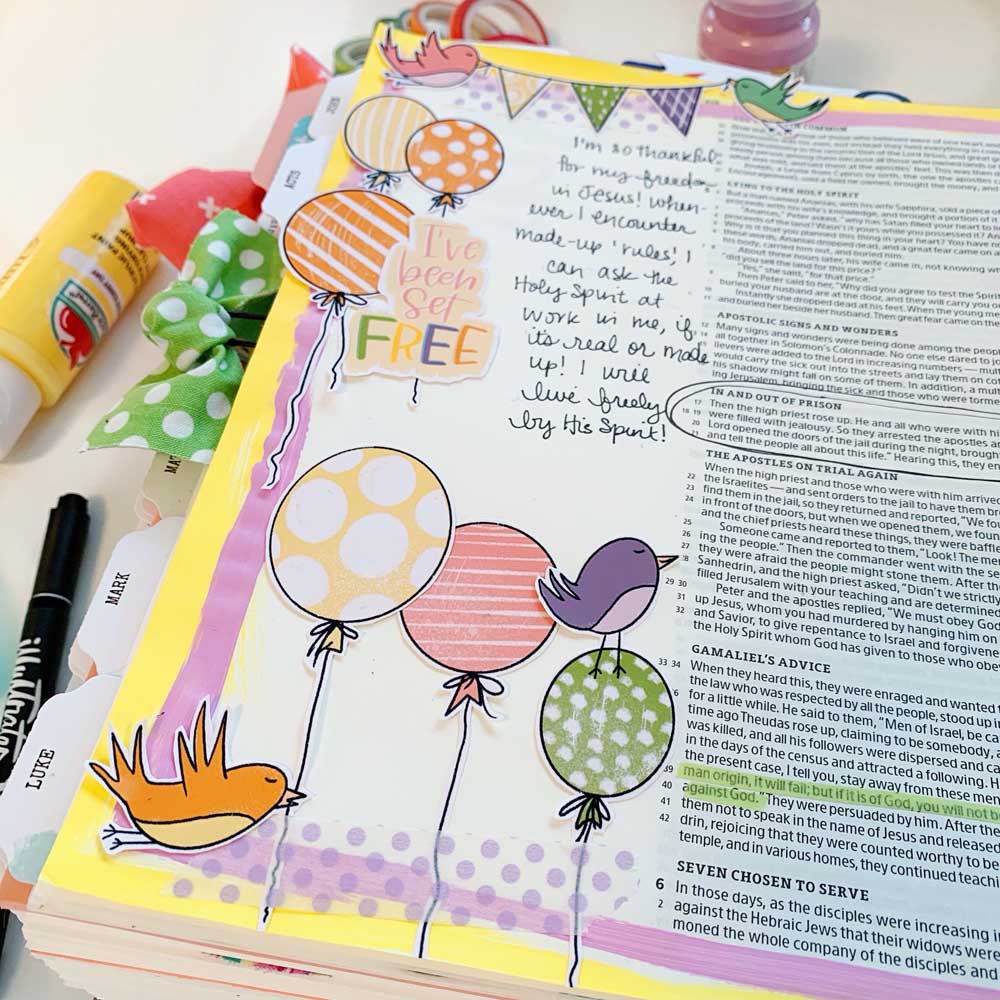 JOHN
ACTS
MARK
LUKE
I've
been
set
FREE
I'm so thankful
for my freedom
in Jesus! When-
ever I encounter
made-up 'rules', I
can ask the
Holy Spirit at
work in me, if
it's real or made
up! I will
live freely
by His Spirit!
LYING TO THE HOLY SPIRIT
"Yes," she said, "for that price."
Then Peter said to her, "Why did you agree to test the Spirit
buried your husband are at the door, and they will carry you
Instantly she dropped dead at his feet. When the young men
and buried her beside her husband. Then great fear came on the
APOSTOLIC SIGNS AND WONDERS
12 Many signs and wonders were being done among the people
all together in Solomon's Colonnade. No one else dared to
lievers were added to the Lord in increasing numbers — mult
would carry the sick out into the streets and lay them on cot
his shadow might fall on some of them. In addition, a mult
ing Jerusalem, bringing the sick and those who were torme
IN AND OUT OF PRISON
17 Then the high priest rose up. He and all who were with hi
18 19 were filled with jealousy. So they arrested the apostles a
20 Lord opened the doors of the jail during the night, brough
21 and tell the people all about this life." Hearing this, they en
THE APOSTLES ON TRIAL AGAIN
When the high priest and those who were with him arrived
22 the Israelites — and sent orders to the jail to have them br
23 find them in the jail, so they returned and reported, "We fo
24 in front of the doors, but when we opened them, we foun
and the chief priests heard these things, they were baffle
25 Someone came and reported to them, "Look! The me
26 ing the people." Then the commander went with the se
27 they were afraid the people might stone them. After th
28 Sanhedrin, and the high priest asked, "Didn't we strictly
29 30 filled Jerusalem with your teaching and are determined
Peter and the apostles replied, "We must obey God
31 up Jesus, whom you had murdered by hanging him on
32 and Savior, to give repentance to Israel and forgivene
the Holy Spirit whom God has given to those who obe
GAMALIEL'S ADVICE
33 34 When they heard this, they were enraged and wanted t
the law who was respected by all the people, stood up i
for a little while. He said to them, "Men of Israel, be ca
time ago Theudas rose up, claiming to be somebody, a
was killed, and all his followers were dispersed and ca
in the days of the census and attracted a following. H
the present case, I tell you, stay away from these men
39 man origin, it will fail; but if it is of God, you will not b
40 against God." They were persuaded by him. After the
41 them not to speak in the name of Jesus and released
42 drin, rejoicing that they were counted worthy to be
temple, and in various homes, they continued teachi
SEVEN CHOSEN TO SERVE
6 In those days, as the disciples were increasing i
2 against the Hebraic Jews that their widows were
moned the whole company of the disciples and